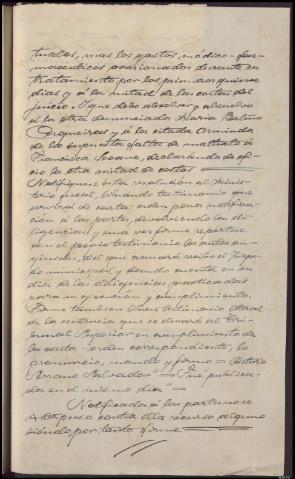 tuales, mas los gastos, médico-far-
macéuticos ocasionados durante su
tratamiento por los primeros quince
días y á la mitad de las costas del
juicio. Y que debo absolver y absuelvo
á la otra denunciada María Balino
Cerqueiras y á la citada Arminda
de la supuesta falta de maltrato á
Francisca Seoane, declarando de ofi-
cio la otra mitad de costas
Notifíquese ésta resolución al Minis-
terio fiscal, librando testimonio que
servirá de carta-orden para notifica-
ción á las partes, devolviendo las di-
ligencias, y una vez firme reportese
con el propio testimonio los autos ori-
ginales, del que acusará recibo el Juzga-
do municipal y dando cuenta en su
día de las diligencias practicadas
para su ejecución y cumplimiento.
Firme tambien librese testimonio literal
de la sentencia que se elevará al Tri-
bunal Superior en cumplimiento de
la carta orden correspondiente, lo
pronuncio, mando y firmo = Arturo
Serrano Salvador" = "Fué publica-
da en el mismo día" =
Notificada á las partes no se
interpuso contra ella recurso alguno
siendo por tanto firme